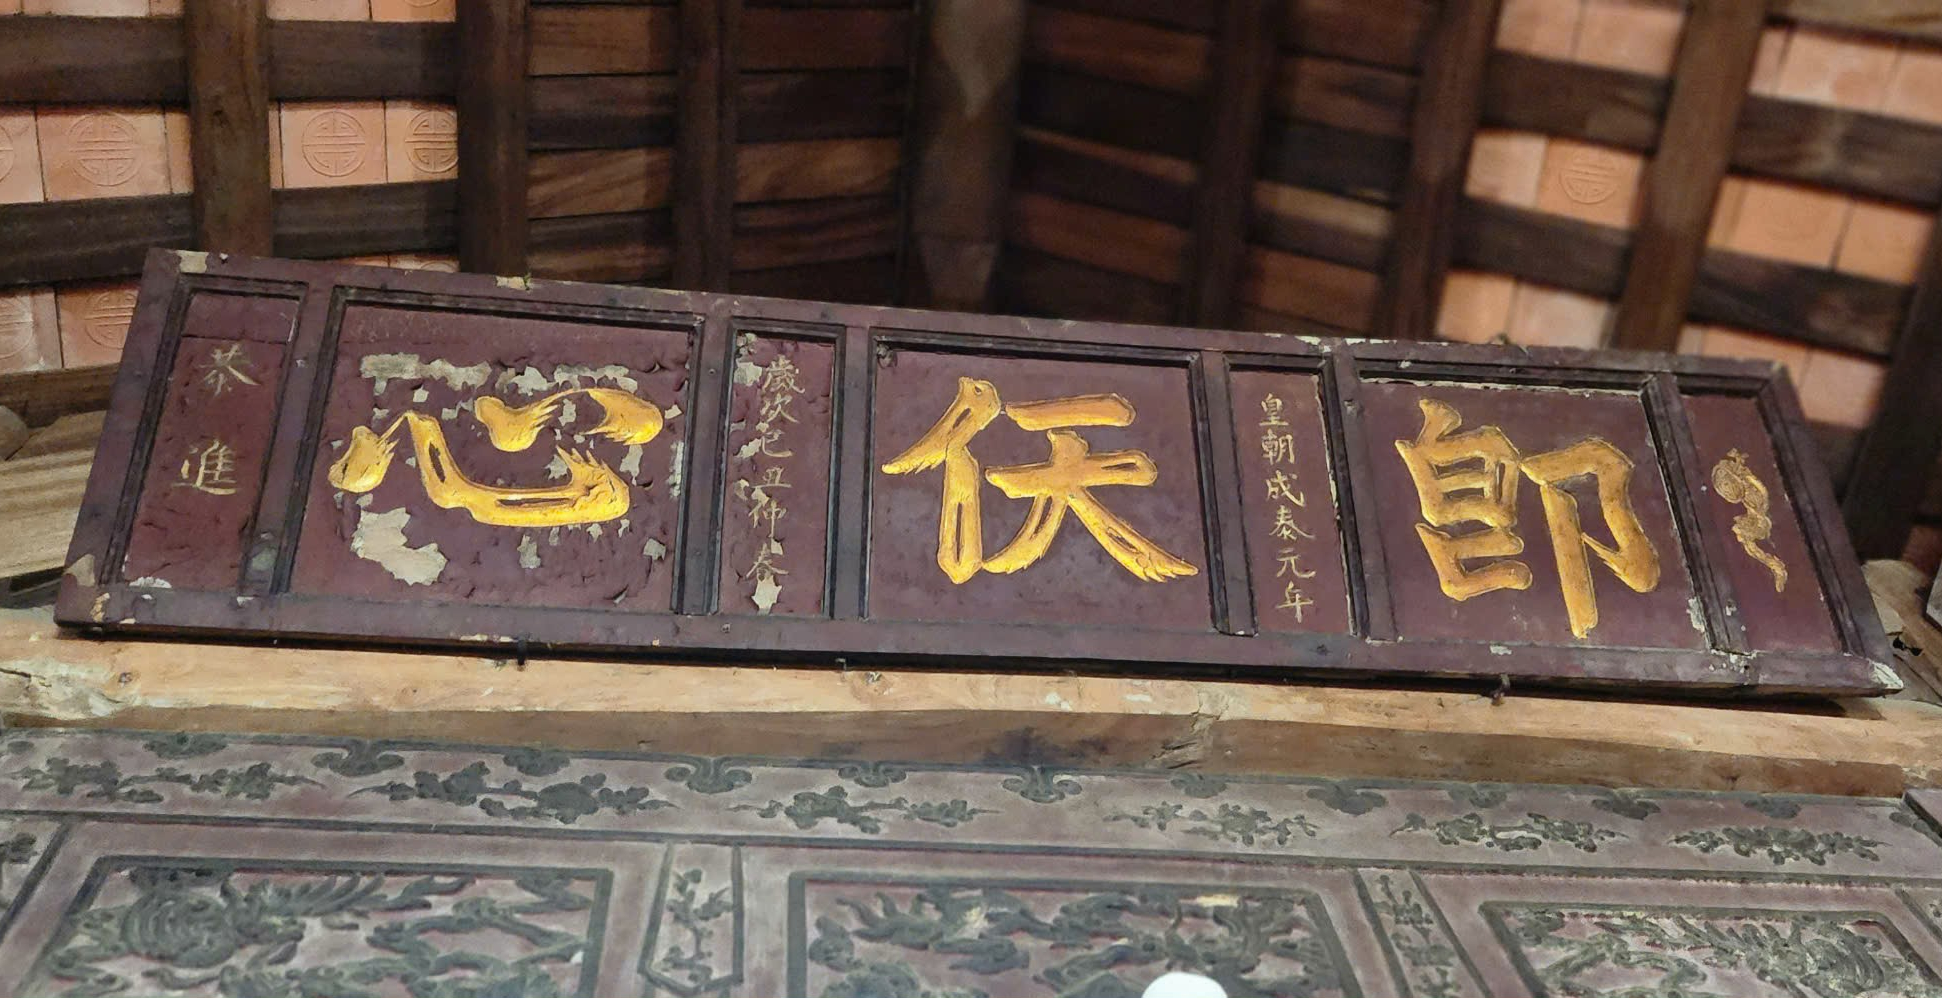 卽仸心
皇朝成泰元年
歲次己丑仲春
恭進